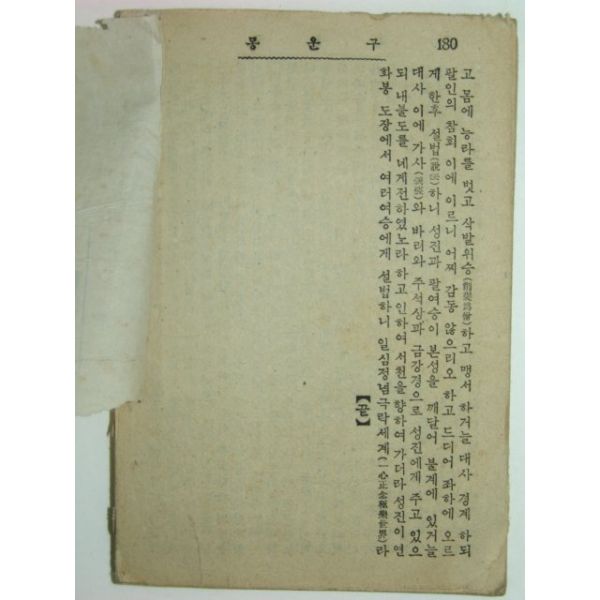 구운몽
180
고 몸에 능라를 벗고 삭발위승(削髮爲僧)하고 맹서 하거늘 대사 경계 하되
팔인의 참회 이에 이르니 어찌 감동 않으리오 하고 드디어 좌하에 오르
게 한후 설법(說法)하니 성진과 팔여승이 본성을 깨달어 불계에 있거늘
대사 이에 가사(袈裟)와 바리와 주석상과 금강경으로 성진에게 주고 있으
되 내불도를 네게전하였노라 하고 인하여 서천을 향하여 가더라 성진이 연
화봉 도장에서 여러여승에게 설법하니 일심정념극락세계(一心正念極樂世界)라
【끝】